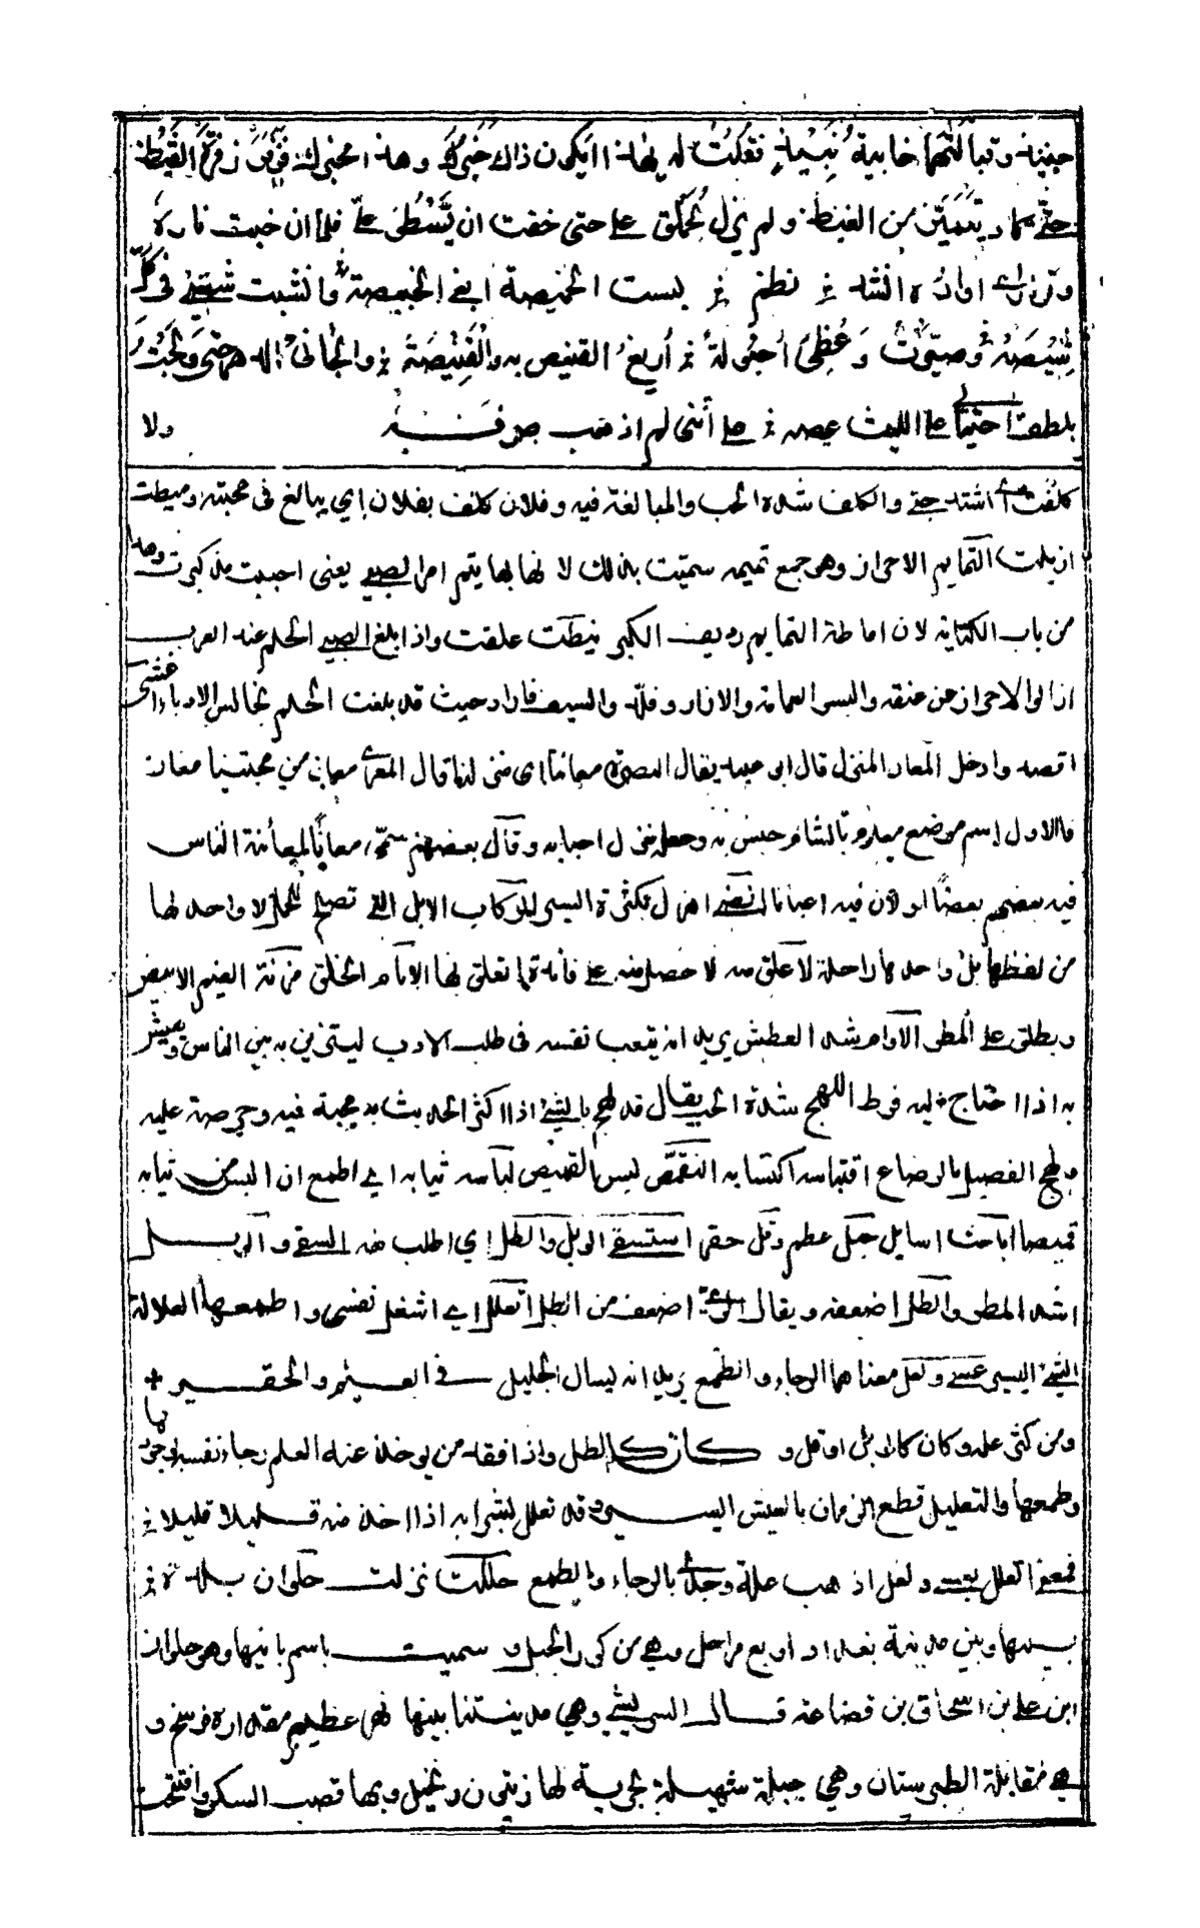 حنيذ وقبالتهما خابية نبيذ فقلت له يا هذا ايكون ذاك خبرك وهذا مخبرك فزفر زفرة القيظ
حتى كاد يتميز من الغيظ ولم يزل يحملق على حتى خفت ان يسطو على فلما ان خبت ناره
وتوارى اواره انشد نظم لبست الخميصة ابغى الخبيصة وانشبت شصى فى كل
شيصه وصيرت وعظى احبولة اريغ القنيص به والقنيصة والجانى الدهر حتى ولجت
بلطف احتيالى على الليث عيصه على أننى لم اذهب صرفه ولا
كلفت اشتد حبى والكلف شدة الحب والمبالغة فيه وفلان كلف بفلان اي يبالغ فى محبته وميطت
ازيلت التمايم الاحراز وهو جمع تميمه سميت بذلك لانها بها يتم امر الصبى يعنى احببت مذ كبرت وهذا
من باب الكناية لان اماطة التمايم رديف الكبر نيطت علقت واذا بلغ الصبى الحلم عند العرب
ازالوا الاحراز من عنقه والبس العمامة والازار وقلد والسيف فاراد حيث قد بلغت الحلم نجالس الادباء اغشى
اقصد وادخل المعان المنزل قال ابو عبيد يقال البصرة معاننا اى منزلنا قال المعرى معان من محبتنا معان
فالاول اسم موضع معلوم بالشام حبس به وجعل منزل احبابه وقال بعضهم سمى معانا لمعاينة الناس
فيه بعضهم بعضا او لان فيه اعيانا لنضى اهزل بكثرة السير الركاب الابل التى تصلح للحمل لا واحد لها
من لفظها بل واحدها راحلة لاعلق منه لا حصل منه على فائدة ما تعلق لها الانام الخلق مزنة الغيم الابيض
ويطلق على المطر الاوام شدة العطش يريد انه يتعب نفسه فى طلب الادب ليتزين به بين الناس ويعيش
به اذا احتاج اليه فرط اللهج شدة الحب يقال قد لهج بالشئ اذا اكثر الحديث به محبة فيه وحرصة عليه
ولهج الفصيل بالرضاع اقتباسه اكتسابه التقمص لبس القميص لباسه ثيابه اى اطمع ان البس من ثيابه
قميصا اباحث اسايل جل عظم وقل حقر استسقى الوبل والطل اي اطلب منه السقى والوبل
اشد المطر والطل اضعفه ويقال اضعف من الطل اتعلل اى اشغل نفسى واطمعها العلالة
الشئ اليسير عسى ولعل معناهما الرجاء والطمع يريد انه ليسال الجليل فى العلم والحقير
ومن كثر علمه وكان كالوبل اوقل وكان كالطل واذا فقد من يوخذ عنه العلم رجاء نفسه بوجود
وطمعها والتعليل قطع الزمان بالعيش اليسير وقد تعلل بشرابه اذا اخذ منه قليلا قليلا
فمعنى اتعلل بعسى ولعل اذهب علة وجدى بالرجاء والطمع حللت نزلت حلوان بلدة
بينها وبين مدينة بغداد اربع مراحل وهى من كور الجبل و سميت باسم بانيها وهو حلوان
ابن على بن اسحاق بن قضاعه قال الشريشى وهي مدينتنا بينها نهر عظيم مقداره فرسخ و
هى مقابلة الطبرستان وهي جبلية سهيلية بحرية لها زيتون ونخيل وبها قصب السكر وافتتحت